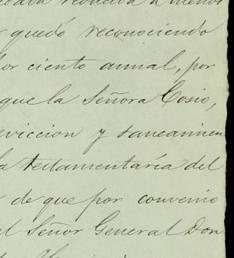 reducida a menos
quedó reconociendo
por ciento annal, por
que la Señora Cosio,
eviccion y saneamien
la testamentaría del
de que por convenio
el Señor General Don